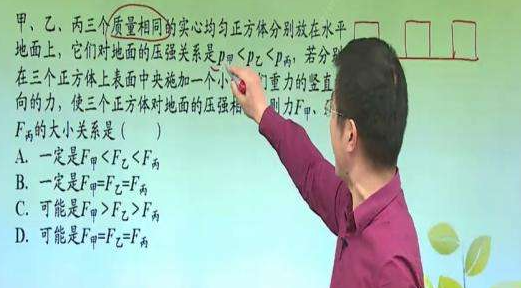 甲、乙、丙三个质量相同的实心均匀正方体分别放在水平
地面上，它们对地面的压强关系是p甲<p乙<p丙，若分别
在三个正方体上表面中央施加一个小 们重力的竖直
向的力，使三个正方体对地面的压强相 则力F甲、
F丙的大小关系是（ ）
A. 一定是F甲<F乙<F丙
B. 一定是F甲=F乙=F丙
C. 可能是F甲>F乙>F丙
D. 可能是F甲=F乙=F丙